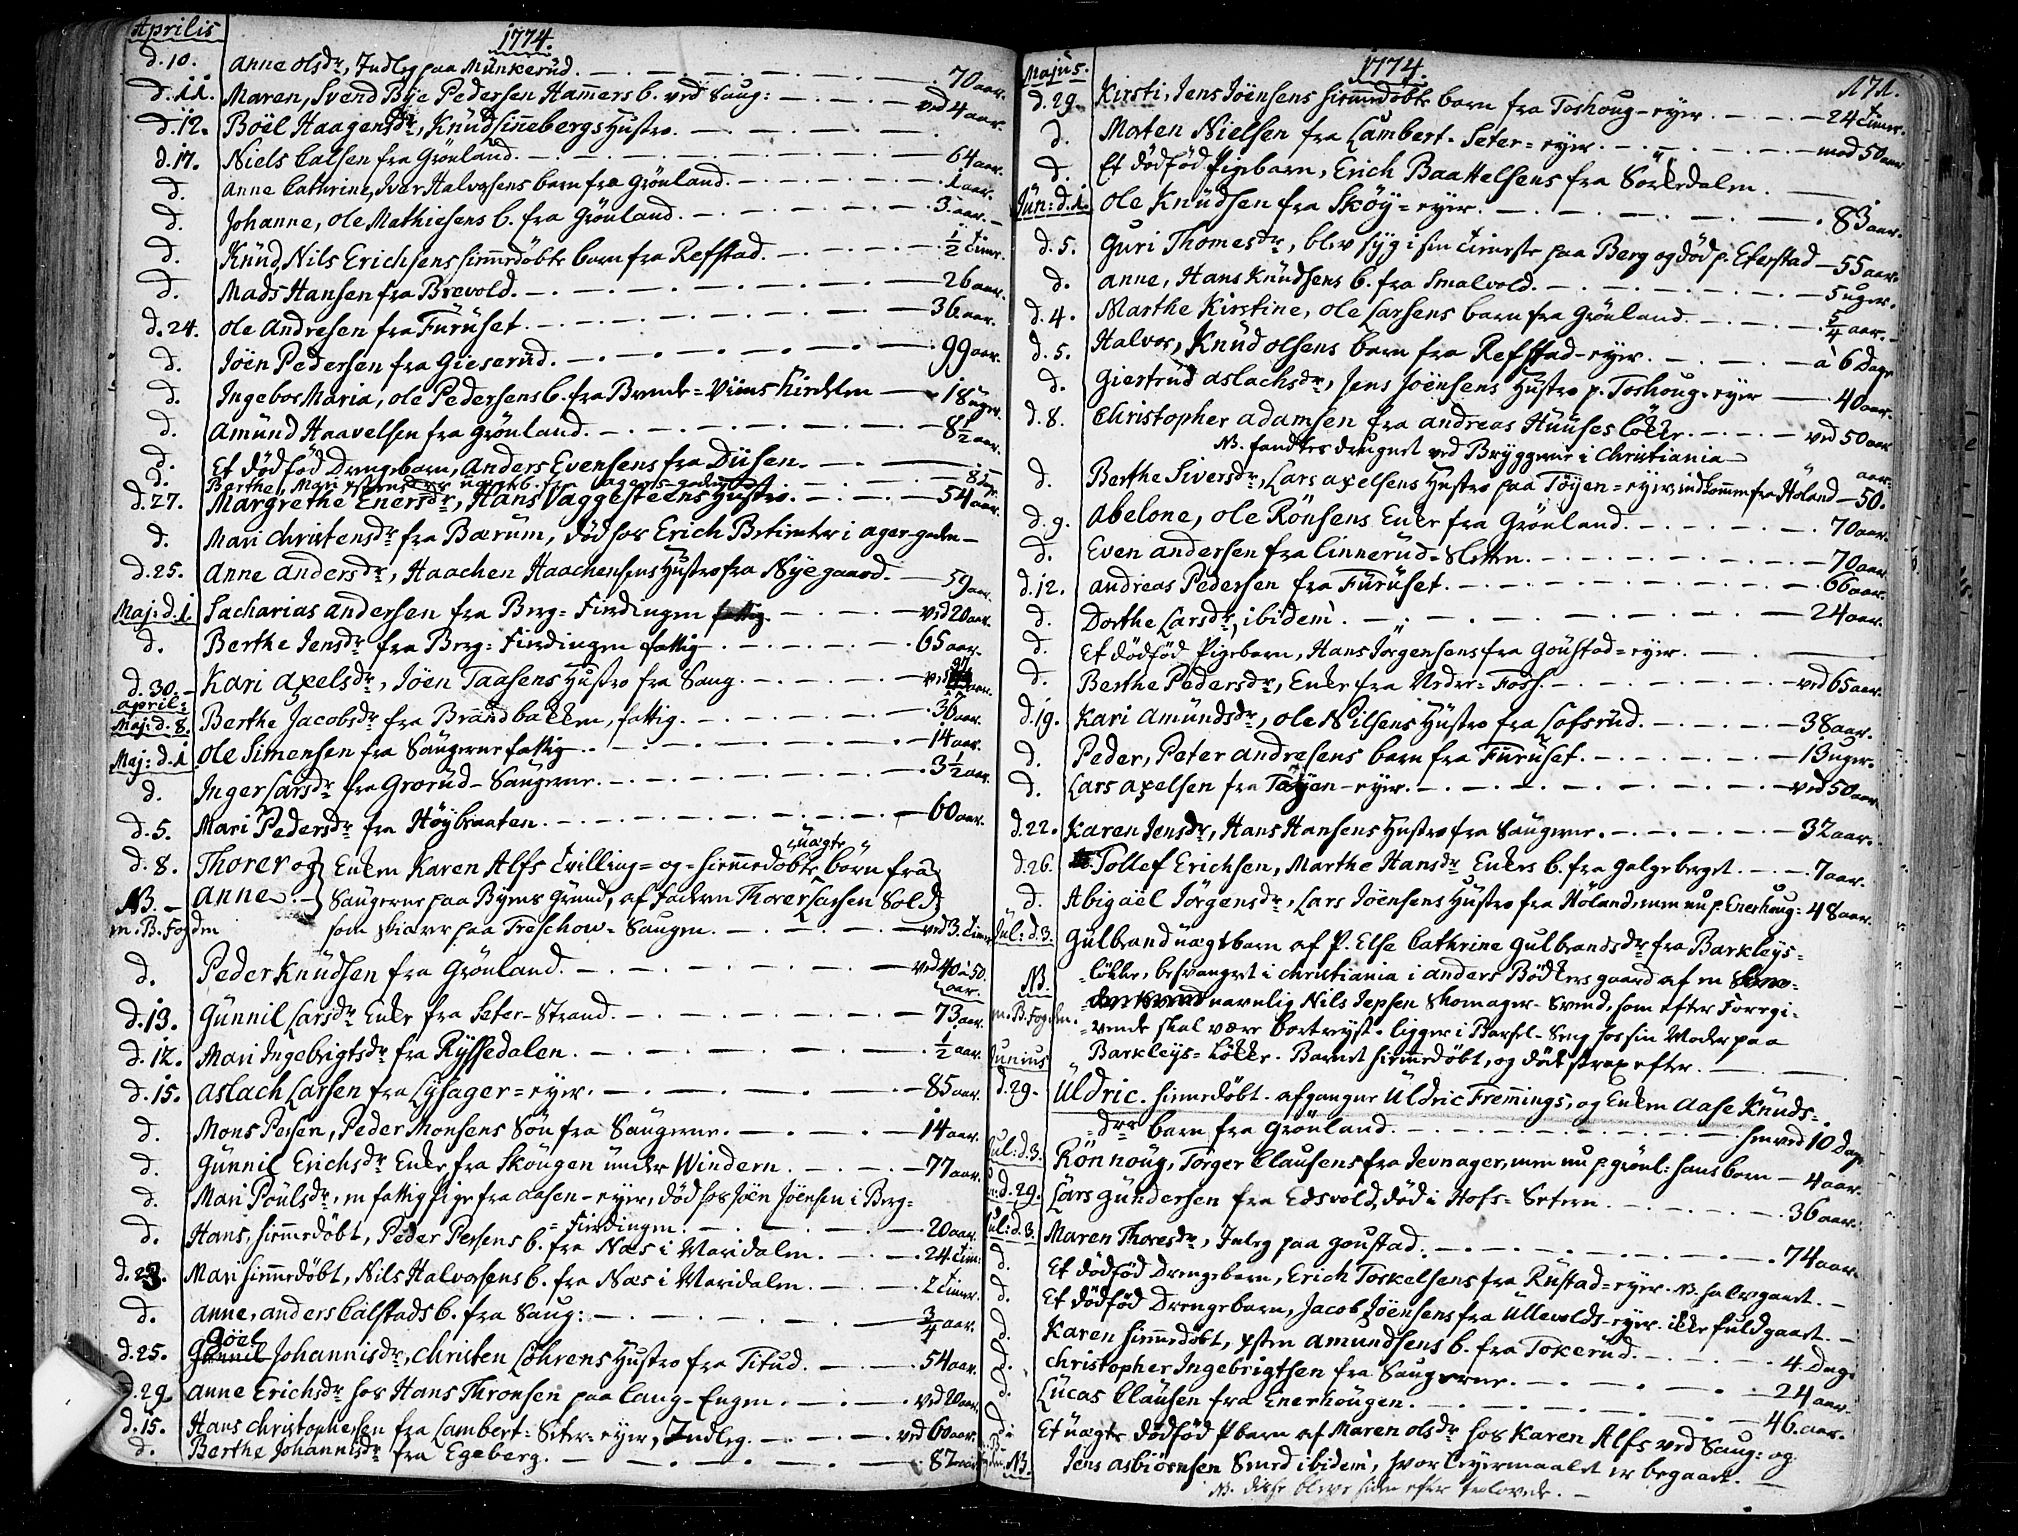 Aprilis
1774.
d. 10. Anne Olsdr, Indleg paa Münkerüd. 70 aar.
d. 11. Maren, Svend Bÿe Pedersen Hamers b. ved Saug: ved 4 aar.
d. 12. Boël Haagensdr, Knüd Sinnebergs Hustro.
d. 17. Niels Calsen fra Grönland. 64 aar.
d. Anne Cathrine, Iver Halvorsens barn fra Grönland. 1 aar.
d. Johanne, Ole Mathiesens b. fra Grönland. 3 aar.
d. Knüd, Nils Erichsens hiemedöbte barn fra Refstad. 1/2 timer.
d. Mads Hansen fra Brevold. 26 aar.
d. 24. Ole Andresen fra Fürüset. 36 aar.
d. Jöen Pedersen fra Gieserüd. 99 aar.
d. Ingebor Maria, Ole Pedersens b. fra 18 uger.
d. Amünd Haavelsen fra Grönland. 8 1/2 aar.
d. Et dödföd Drengebarn, Anders Evensens fra Diisen.
d. Berthe, Mari
d. 27. Margrethe Enersdr, Hans Vaggesteens Hustro. 54 aar.
d. Mari Christensdr fra Bærum, död hos Erich Betienter i ager-gaden
d. 25. Anne Andersdr, Haachen Haachensens Hustro fra Nÿegaard. 59 aar.
Maj: d. 1. Sacharias Andersen fra Berg-Fierdingen fattig. ved 20 aar.
d. Berthe Jensdr fra Berg-Fierdingen fattig 65 aar.
d. 30. april: Kari Axelsdr, Jöen Taasens Hustro fra Saug. ved aar.
Maj: d. 8. Berthe Jacobsdr fra Brandbakken, fattig. 36 aar.
Maj: d. 1 Ole Simensen fra Saugerne fattig 14 aar.
d. Inger Larsdr fra Grorüd-Saugerne. 3 1/2 aar.
d. 5. Mari Pedersdr fra Höÿbraaten. 60 aar.
uægte
d. 8. Thorer og Enken Karen Alfs tvilling- og hiemmedöbte börn fra
NB. Anne. Saugerne paa Byens Grund, af faderen Thorer Larsen Sold
m. B. Fogden som skiærer paa Treschow-Saugen. ved 3 timer
d. Peder Knüdsen fra Grönland. ved 40 à 50 aar.
d. 13. Günnil Larsdr Enke fra Seter-Strand. 73 aar.
d. 12. Mari Ingebrigtsdr fra Rÿssedalen. 1/2 aar.
d. 15. Aslach Larsen fra Lysager-eyer. 85 aar.
d. Mons Persen, Peder Monsens Sön fra Saugerne. 14 aar.
d. Günnil Erichsdr Enke, fra Skougen ünder Windern. 77 aar.
d. Mari Poülsdr, en fattig pige fra Aasen-eyer, död hos Jöen Jöensen i Berg-
-Fierdingen. 20 aar.
d. Hans, hiemmedöbt, Peder Persens b. fra Næs i Maridalen. 24 tim:
d. 23. Mari hiemmedöbt, Nils Halvorsens b. fra Næs i Maridalen. 2 timer.
d. Anne, Anders Calstads b. fra Saug: 3/4 aar.
Göel
d. 25. Johannisdr, Christen Löhrens Hustro fra Titud. 54 aar.
d. 29. Anne Erichsdr hos Hans Thronsen paa Lang-Engen. ved 20 aar.
d. 15. Hans Christophersen fra Lambert-Seter-eyer, Indleg. ved 60 aar.
d. Berthe Johannisdr fra Egeberg. 82 aar
Majus.
1774.
171.
d. 29. Kirsti, Jens Jöensens hiemmedöbte barn fra Toshoug-eyer. 24 timer.
d. Morten Nielsen fra Lambert-Seter-eyer. med 50 aar
d. Et dödföd Pigebarn, Erich Baa Helsens fra Sörkedalen.
Jün: d. 1. Ole Knüdsen fra Sköy-eyer. 83 aar.
d. 5. Guri Thomesdr, blev syg i sin tieneste paa Berg og död p. Eferstad 55 aar.
d. Anne, Hans Knüdsens b. fra Smalvold. 5 uger.
d. 4. Marthe Kirstine, Ole Larsens barn fra Grönland. 5/4 aar.
d. 5. Halvor, Knüd Olsens barn fra Refstad-eyer. a 6 Dage
d. Giertrüd Aslachsdr, Jens Jöensens Hustro p. Toshoug-eyer 40 aar.
d. 8. Christopher Adamsen fra Andreas Hüüses Lökke. ved 50 aar
NB. fandtes druknet ved Bryggerne i Christiania
d. Berthe Siversdr, Lars Axelsens Hustro paa Töyen-eyer, indkommen fra Höland 50. aar.
d. 9. Abelone, Ole Rönsens Enke fra Grönland. 70 aar.
d. Even Andersen fra Linnerud-Sletten. 70 aar.
d. 12. Andreas Pedersen fra Fürüset. 66 aar.
d. Dorthe Larsdr, ibidem. 24 aar.
d. Et dödföd Pigebarn, Hans Jörgensens fra Goustad-eyer.
d. Berthe Pedersdr, Enke fra Nedre-Foss. ved 65 aar.
d. 19. Kari Amündsdr, Ole Nilsens Hustro fra Lofsrüd. 38 aar.
d. Peder, Peter Andresens barn fra Fürüset. 13 uger.
d. Lars Axelsen fra Töyen-eyer. ved 50 aar.
d. 22. Karen Jensdr, Hans Hansens Hustro fra Saugerne. 32 aar.
d. 26. Tollef Erichsen, Marthe Hansdr Enkes b. fra Galgeberget. 7 aar.
d. Abigael Jörgensdr, Lars Jöensens Hustro fra Höland, men nu p. Enerhoug: 48 aar.
Jül: d. 3. Gülbrand uægt barn af P. Else Cathrine Gulbrandsdr fra Barkleys-
NB. -lökke, besvangret i Christiania i Anders Bödkers gaard af en
m. B. Fogden. navnlig Nils Jepsen Skomager-Svend, som efter Foregi-
-vende skal være bortreyst. ligger i Barsel-Seng hos sin Moder paa
Barkleys-Lökke. Barnet hiemmedöbt, og död strax efter.
Junius
d. 29. Üldric. hiemmedöbt. afgangne Üldric Fremings, og Enken Aase Knüds-
-drs barn fra Grönland. hen ved 10 dage
Jul: d. 3. Rönnoüg, Torger Clausens fra Jevnager, men nu p. Grönl: hans barn 4 aar.
d. 29. Lars Gündersen fra Edsvold, död i Hofs-Seteren 36 aar.
Jul: d. 3. Maren Thoresdr, Inleg paa Goustad. 74 aar.
d. Et dödföd Drengebarn, Erich Torkelsens fra Rustad-eyer. NB. halvgaaet.
d. Et dödföd Drengebarn, Jacob Jöensens fra Ullevolds-eyer. ikke fuldgaaet.
d. Karen hiemmedöbt, Amundsens b. fra Tokerüd. 4 Dage
d. Christopher Ingebrigtsen fra Saugerne. 24 aar.
d. Lücas Claüsen fra Enerhougen. 46. aar.
d. Et uægte dödföd P.barn af Maren Olsdr hos Karen Alfs ved Saug: og
NB. Jens Asbiörnsen Smed ibidem, hvor leyermaalet er begaaet.
NB. disse bleve siden efter trolovede.